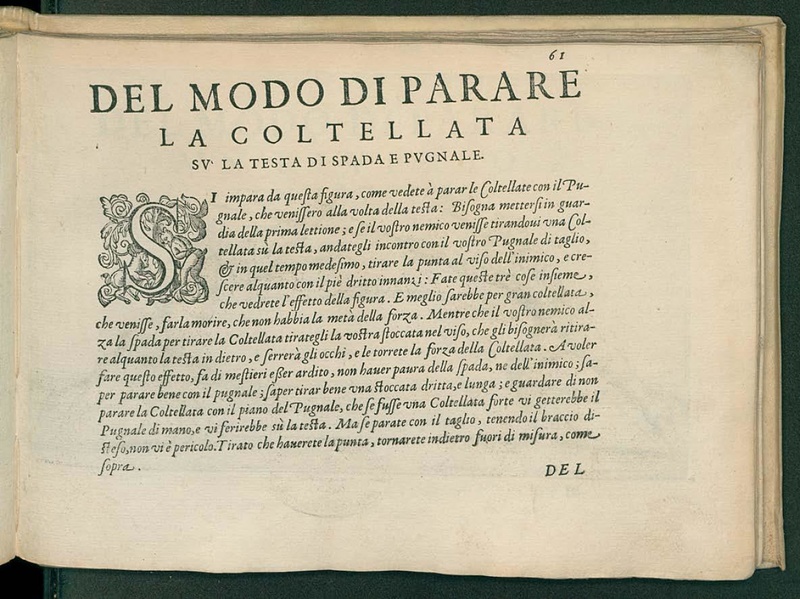 61
DEL MODO DI PARARE
LA COLTELLATA
SV' LA TESTA DI SPADA E PVGNALE.
SI impara da questa figura, come vedete à parar le Coltellate con il Pu-
gnale, che venissero alla volta della testa: Bisogna mettersi in guar-
dia della prima lettione; e se il vostro nemico venisse tirandoui vna Col-
tellata sù la testa, andategli incontro con il vostro Pugnale di taglio,
& in quel tempo medesimo, tirare la punta al viso dell'inimico, e cre-
scere alquanto con il piè dritto innanzi: Fate queste trè cose insieme,
che vedrete l'effetto della figura. E meglio sarebbe per gran coltellata,
che venisse, farla morire, che non habbia la metà della forza. Mentre che il vostro nemico al-
za la spada per tirare la Coltellata tirategli la vostra stoccata nel viso, che gli bisognerà ritira-
re alquanto la testa in dietro, e serrerà gli occhi, e le torrete la forza della Coltellata. A voler
fare questo effetto, fa di mestieri esser ardito, non hauer paura della spada, ne dell'inimico; sa-
per parare bene con il pugnale; saper tirar bene vna stoccata dritta, e lunga; e guardare di non
parare la Coltellata con il piano del Pugnale, che se fusse vna Coltellata forte vi getterebbe il
Pugnale di mano, e vi ferirebbe sù la testa. Ma se parate con il taglio, tenendo il braccio di-
steso, non vi è pericolo. Tirato che hauerete la punta, tornarete indietro fuori di misura, come
sopra.
DEL